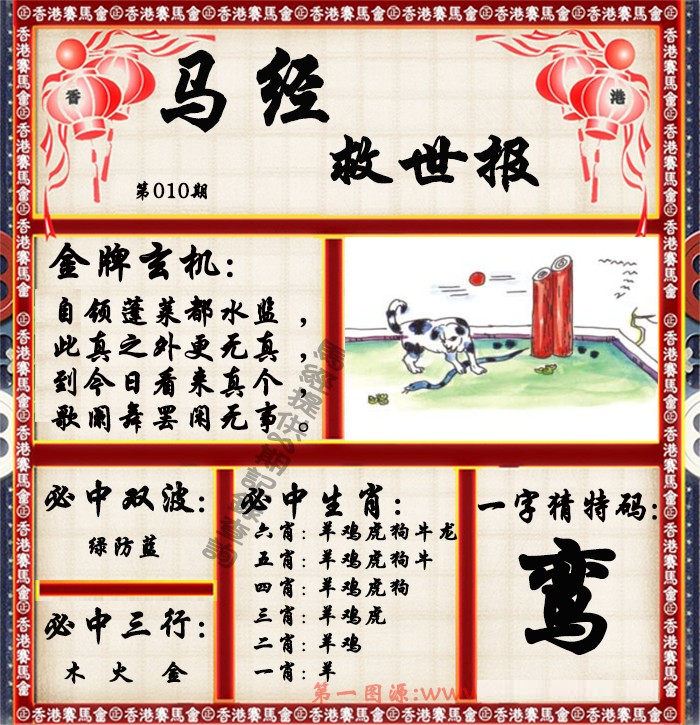 香港賽馬會
香
港
马经
救世报
第010期
金牌玄机:
自领蓬莱都水监，
此真之外更无真，
到今日看来真个，
歌阑舞罢闲无事。
必中双波:
绿防蓝
必中三行:
木火金
必中生肖:
六肖:羊鸡虎狗牛龙
五肖:羊鸡虎狗牛
四肖:羊鸡虎狗
三肖:羊鸡虎
二肖:羊鸡
一肖:羊
一字猜特码:
鸾
第一图源:www